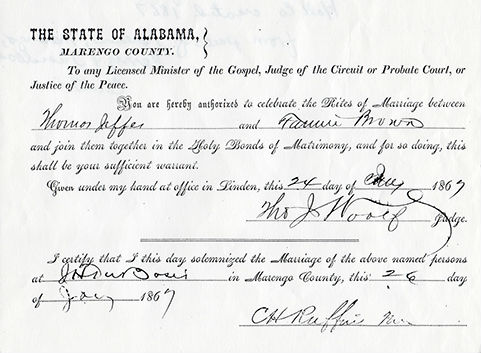 THE STATE OF ALABAMA,
MARENGO COUNTY.
To any Licensed Minister of the Gospel, Judge of the Circuit or Probate Court, or
Justice of the Peace.
You are hereby authorized to celebrate the Rites of Marriage between
Thomas Jeffes and Fannie Brown
and join them together in the Holy Bonds of Matrimony, and for so doing, this
shall be your sufficient warrant.
Given under my hand at office in Linden, this 24 day of 1867
Tho J Woolf Judge.
I certify that I this day solemnized the Marriage of the above named persons
at in Marengo County, this 26 day
of 1867
C H Ruffin